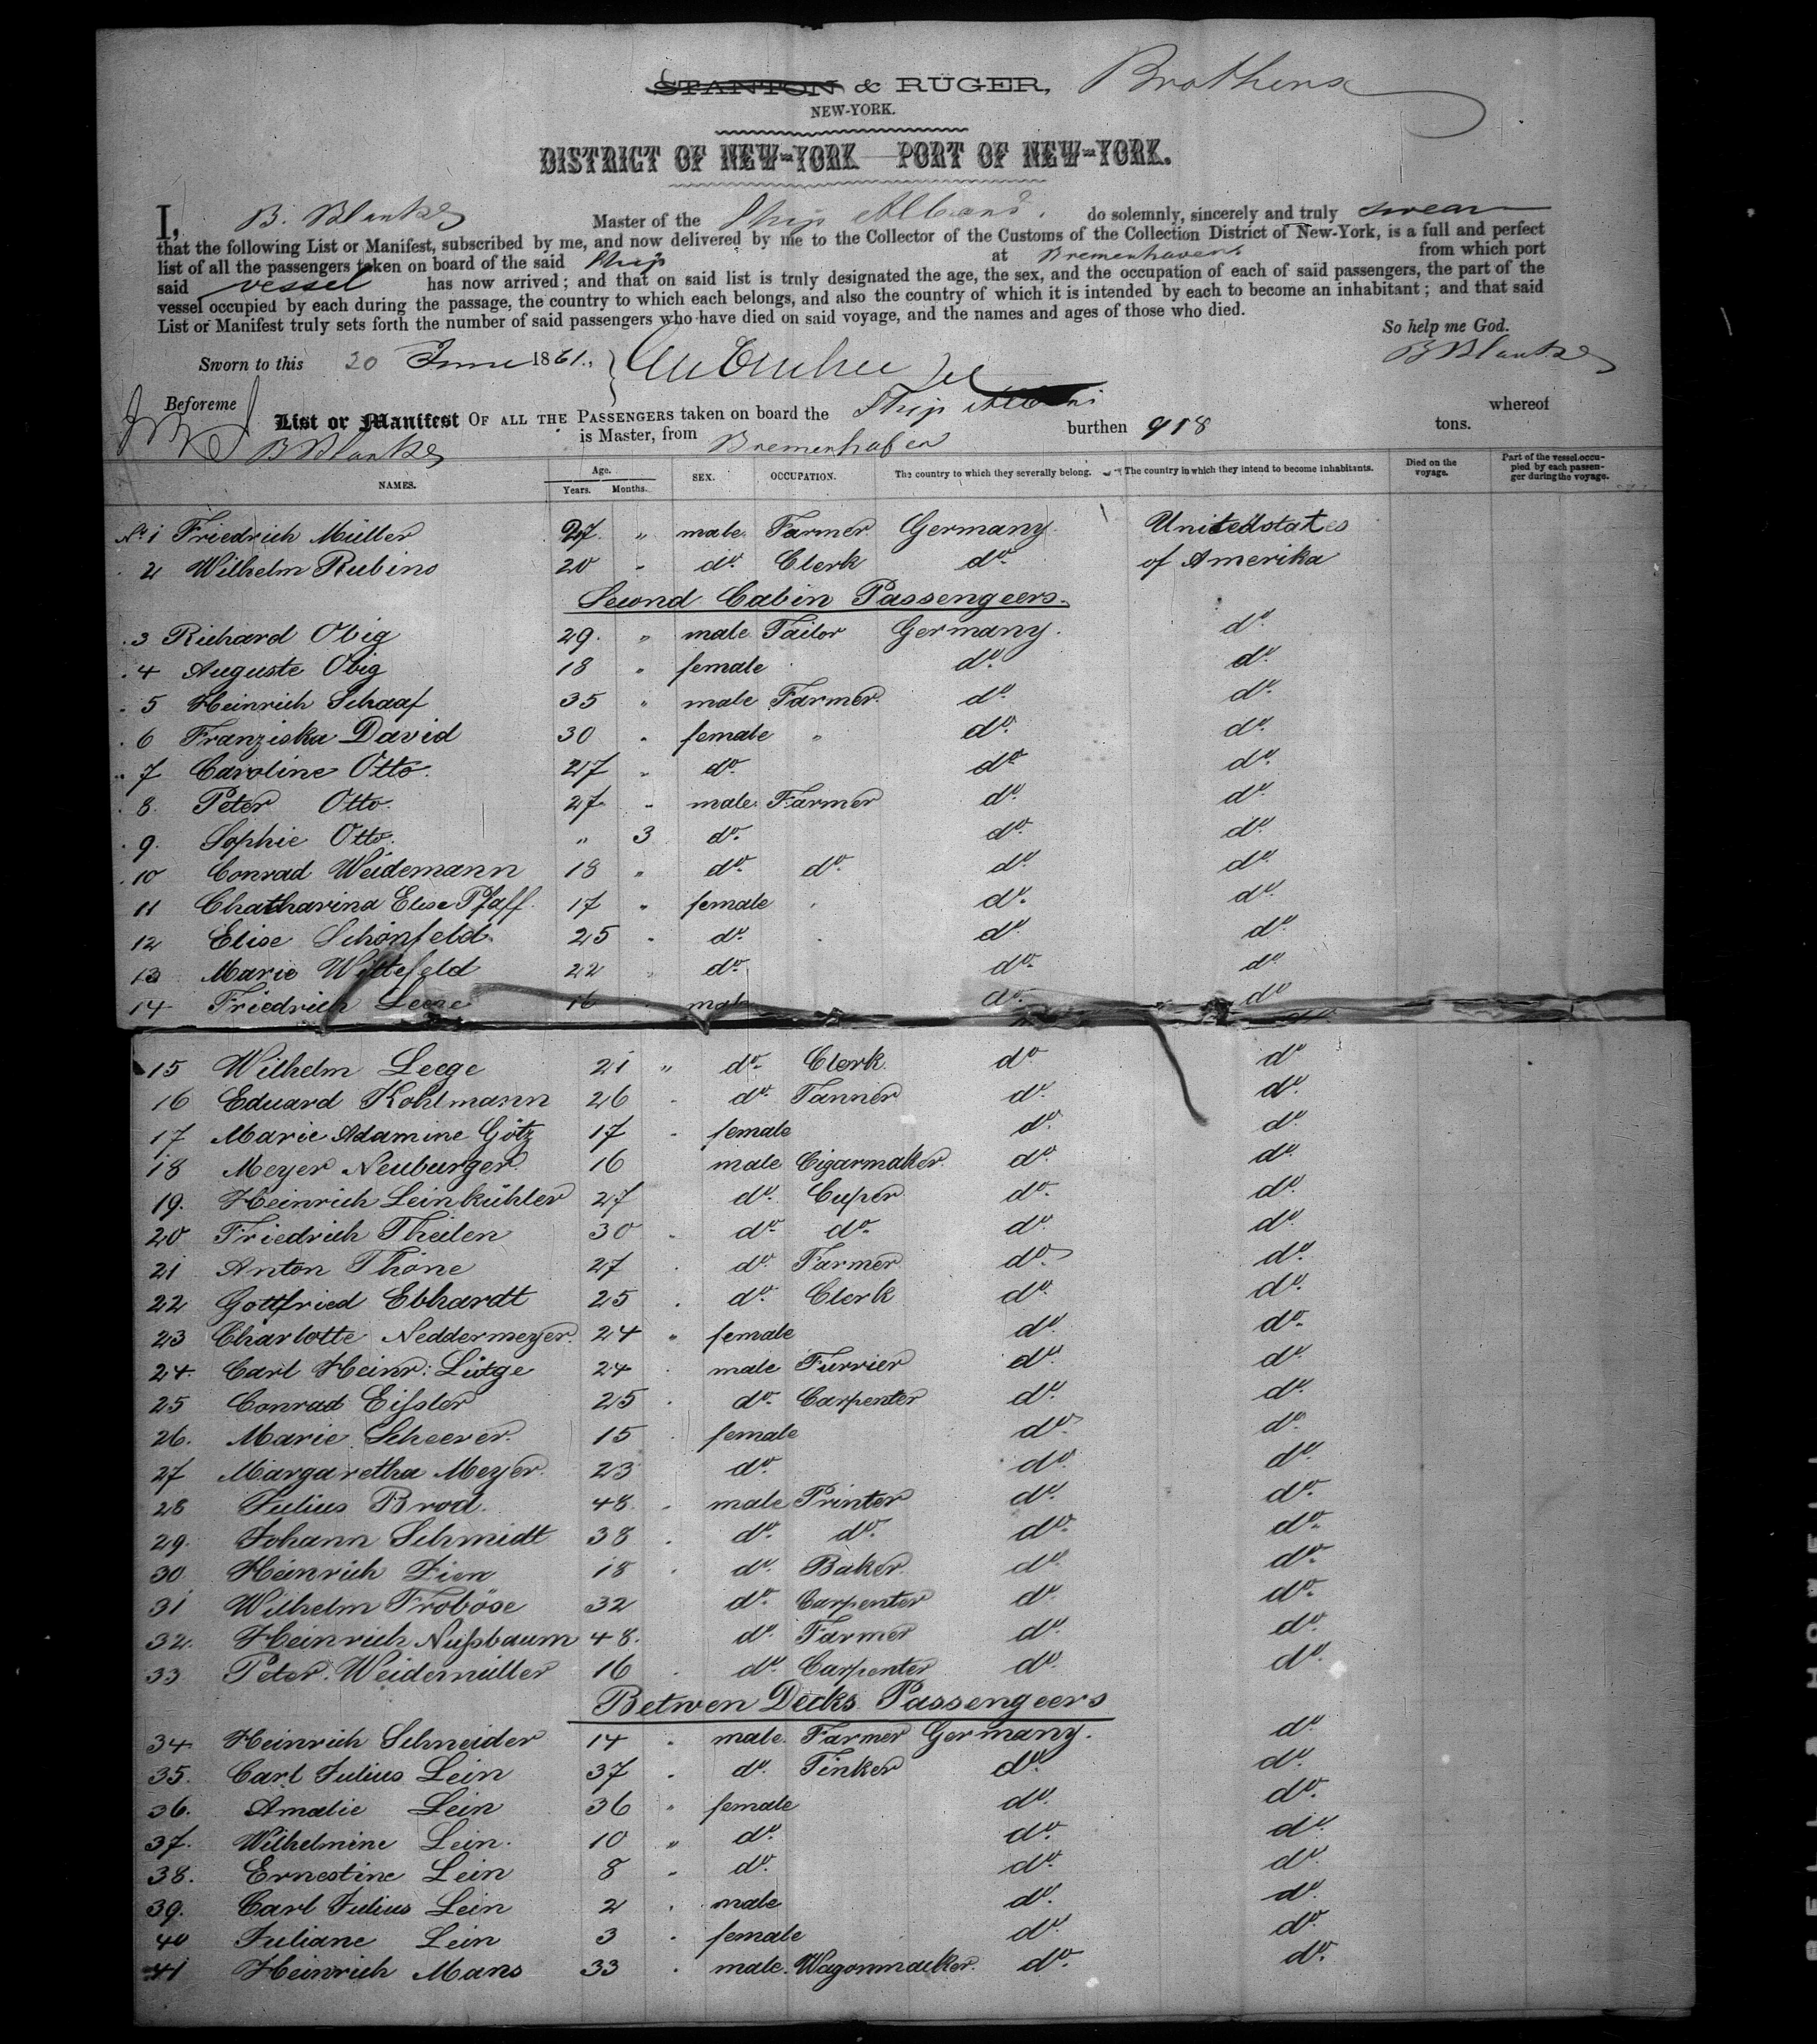 STANTON & RÜGER, Brothers
NEW-YORK.
DISTRICT OF NEW-YORK—PORT OF NEW-YORK.
I, B. Blanke Master of the Ship Albani, do solemnly, sincerely and truly swear
that the following List or Manifest, subscribed by me, and now delivered by me to the Collector of the Customs of the Collection District of New-York, is a full and perfect
list of all the passengers taken on board of the said Ship at Bremenhaven from which port
said vessel has now arrived; and that on said list is truly designated the age, the sex, and the occupation of each of said passengers, the part of the
vessel occupied by each during the passage, the country to which each belongs, and also the country of which it is intended by each to become an inhabitant; and that said
List or Manifest truly sets forth the number of said passengers who have died on said voyage, and the names and ages of those who died.
So help me God.
Sworn to this 20 June 1861. B Blanke
Before me
List or Manifest OF ALL THE PASSENGERS taken on board the Ship Albani whereof
B Blanke is Master, from Bremenhafen burthen 918 tons.
NAMES. Age. Years. Months. SEX. OCCUPATION. The country to which they severally belong. The country in which they intend to become inhabitants. Died on the voyage. Part of the vessel occupied by each passenger during the voyage.
No 1 Friedrich Müller 27 " male Farmer Germany Unitedstates
2 Wilhelm Rubino 20 " do. Clerk do. of Amerika
Second Cabin Passengeers.
3 Richard Obig 29. " male Tailor Germany. do.
4 Auguste Obig 18 " female do. do.
5 Heinrich Schaaf 35 " male Farmer do. do.
6 Franziska David 30 " female " do. do.
7 Caroline Otto 27 " do. do. do.
8. Peter Otto 27 " male Farmer do. do.
9. Sophie Otto " 3 do. do. do.
10 Conrad Weidemann 18 " do. do. do. do.
11 Chatharina Elise Pfaff 17 " female do. do.
12 Elise Schönfeld 25 " do. do. do.
13 Marie Wittefeld 22 " do. do. do.
14 Friedrich Leege 16 male do. do.
15 Wilhelm Leege 21 " do. Clerk do. do.
16 Eduard Kohlmann 26 " do. Tanner do. do.
17 Marie Adamine Götz 17 " female do. do.
18 Meyer Neuburger 16 male Cigarmaker do. do.
19. Heinrich Leinkühler 27 do. Cuper do. do.
20 Friedrich Theilen 30 do. do. do. do.
21 Anton Thöne 27 do. Farmer do. do.
22 Gottfried Ebhardt 25 do. Clerk do. do.
23 Charlotte Neddermeyer 24 " female do. do.
24. Carl Heinr: Lütge 24 male Furrier do. do.
25 Conrad Eißler 25 do. Carpenter do. do.
26. Marie Scheerer 15 female do. do.
27 Margaretha Meyer 23 do. do. do.
28 Julius Brod 48 male Printer do. do.
29. Johann Schmidt 38 do. do. do. do.
30 Heinrich Zien 18 do. Baker do. do.
31 Wilhelm Froböse 32 do. Carpenter do. do.
32. Heinrich Nußbaum 48. do. Farmer do. do.
33 Peter Weidemüller 16 do. Carpenter do. do.
Betwen Decks Passengeers
34 Heinrich Schneider 14 male Farmer Germany. do.
35. Carl Julius Lein 37 do. Tinker do. do.
36. Amalie Lein 36 " female do. do.
37. Wilhelmine Lein. 10 " do. do. do.
38. Ernestine Lein 8 do. do. do.
39. Carl Julius Lein 2 male do. do.
40 Juliane Lein 3 female do. do.
41 Heinrich Mans 33 male Wagonmacker do. do.